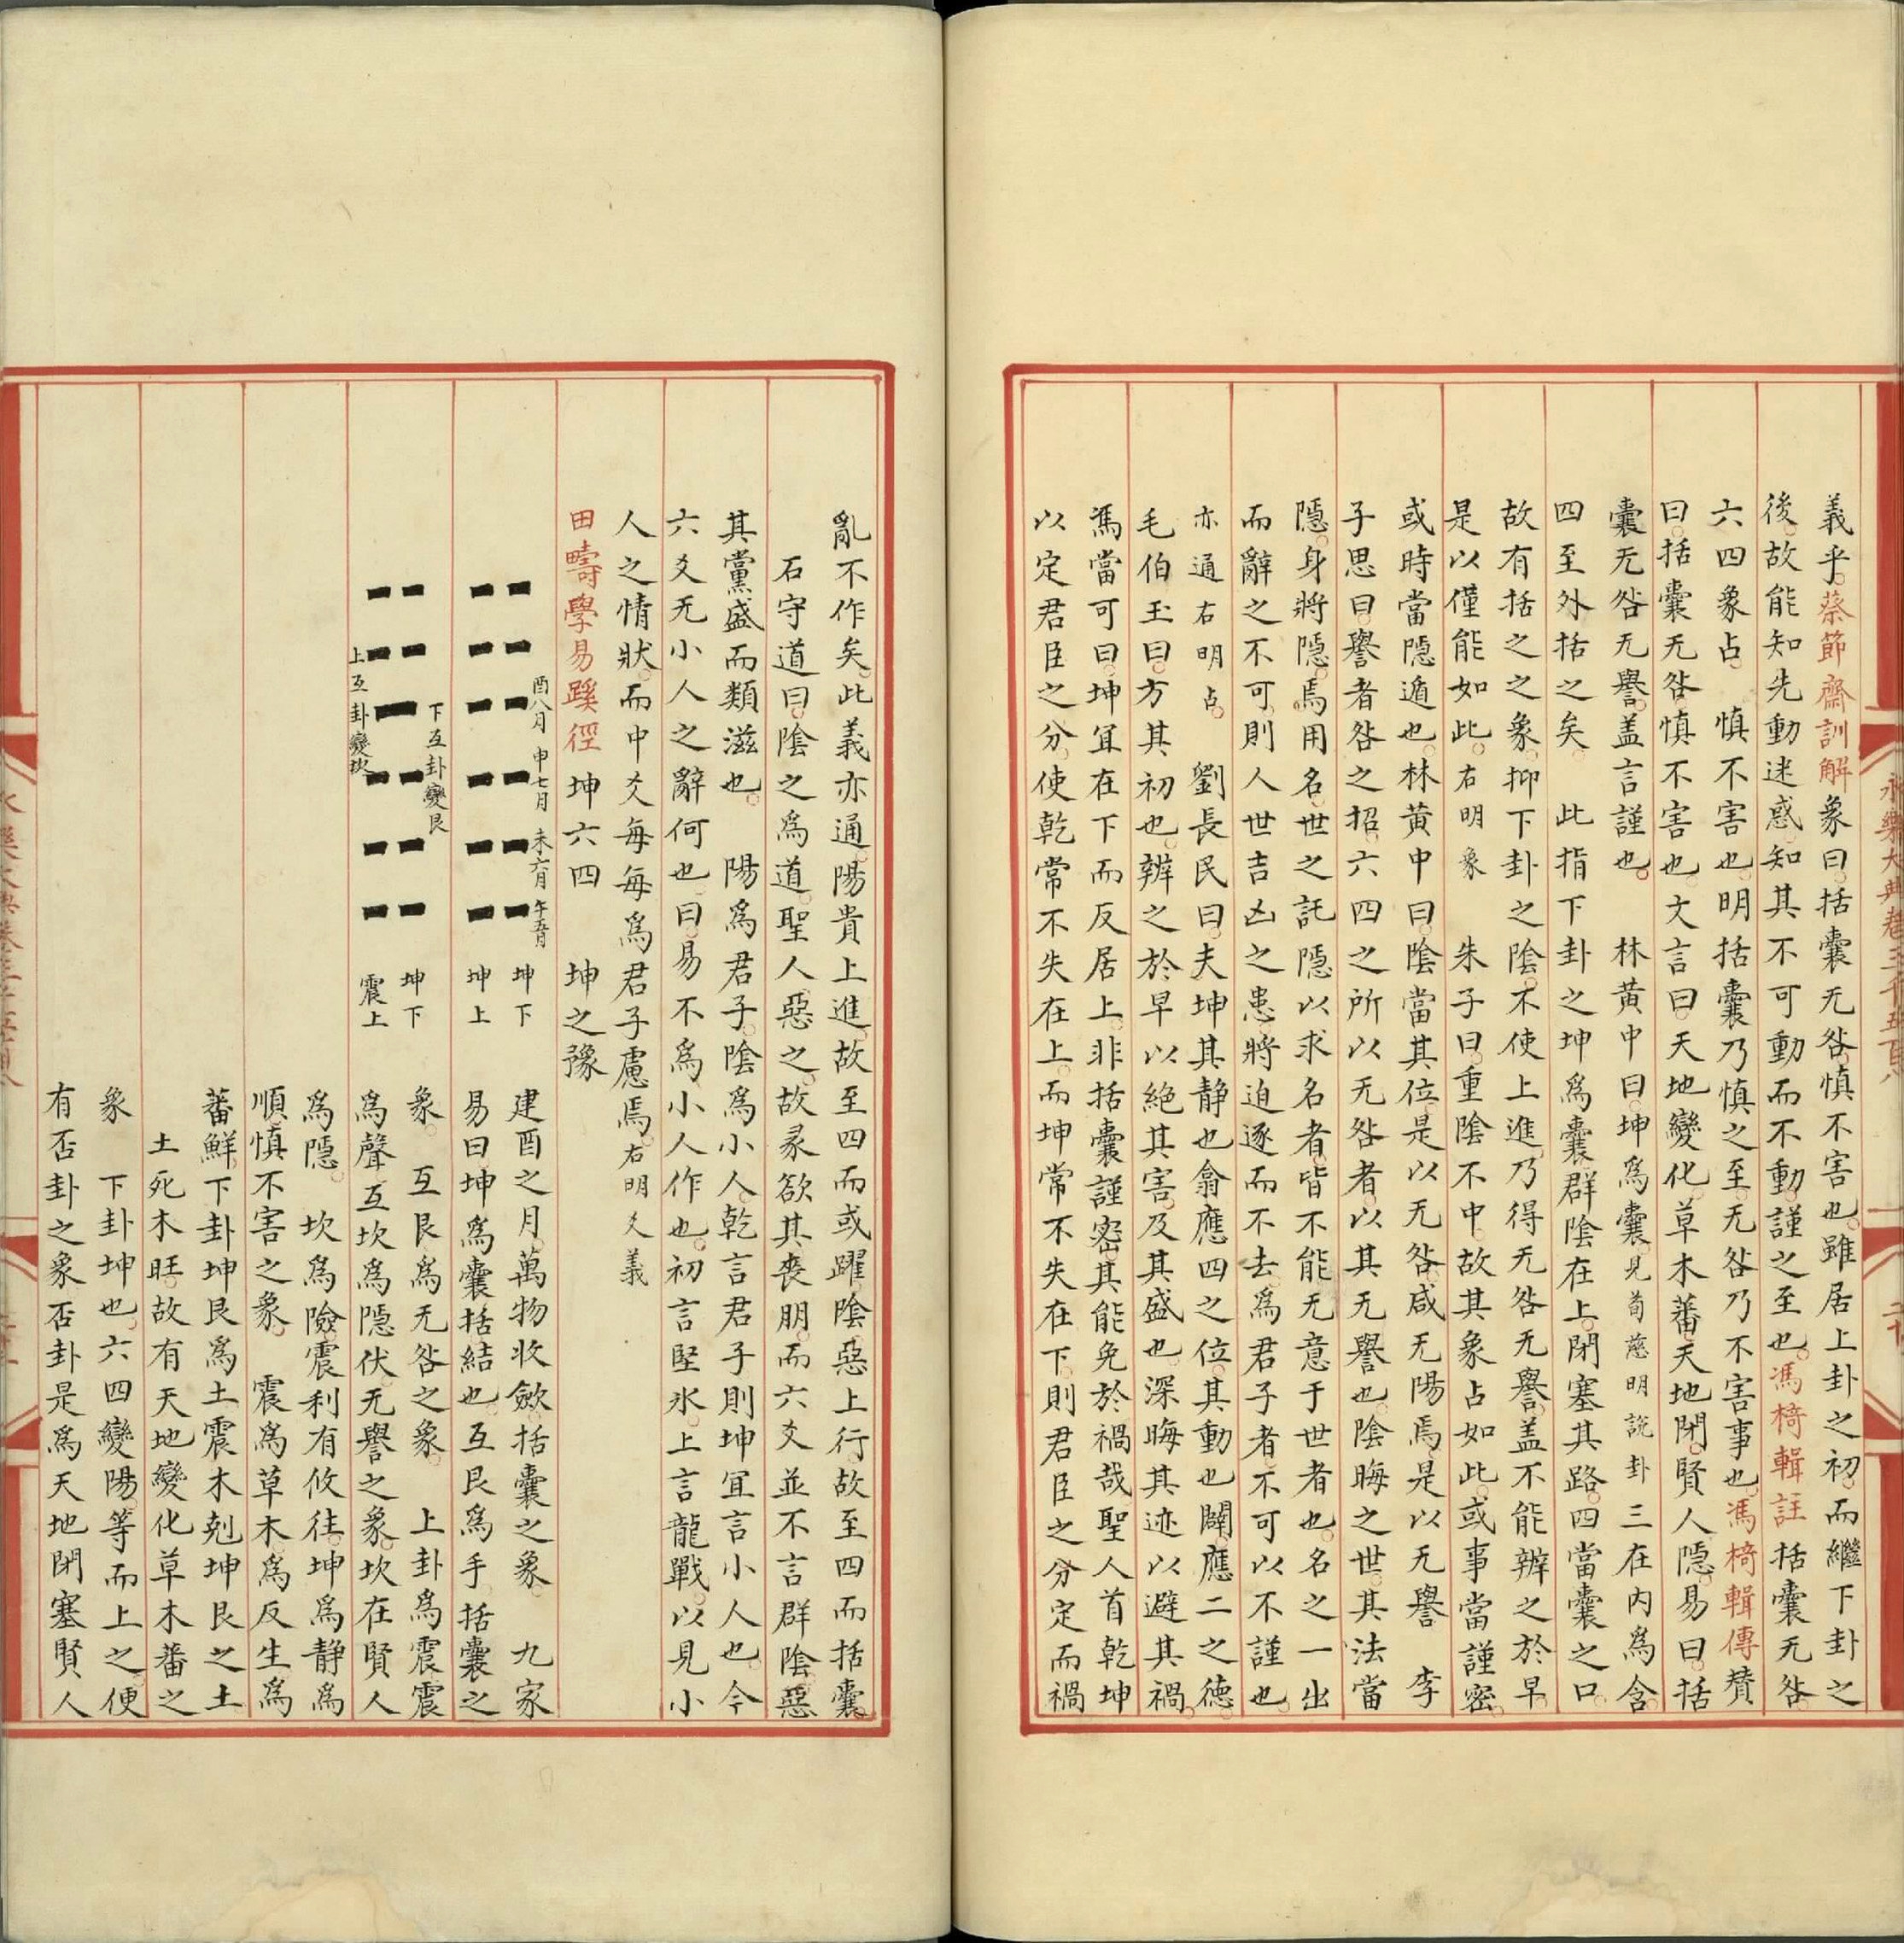 義乎蔡節齋訓解象曰括囊无咎慎不害也雖居上卦之初而繼下卦之
後故能知先動迷惑知其不可動而不動謹之至也馮椅輯註括囊无咎
六四象占 慎不害也明括囊乃慎之至无咎乃不害事也馮椅輯傳贊
曰括囊无咎慎不害也文言曰天地變化草木蕃天地閉賢人隱易曰括
囊无咎无譽盖言謹也 林黃中曰坤爲囊見荀慈明說卦三在內爲含
四至外括之矣 此指下卦之坤爲囊群陰在上閉塞其路四當囊之口
故有括之之象抑下卦之陰不使上進乃得无咎无譽盖不能辨之於早
是以僅能如此右明象 朱子曰重陰不中故其象占如此或事當謹密
或時當隱遁也林黃中曰陰當其位是以无咎咸无陽焉是以无譽 李
子思曰譽者咎之招六四之所以无咎者以其无譽也陰晦之世其法當
隱身將隱焉用名世之託隱以求名者皆不能无意于世者也名之一出
而辭之不可則人世吉凶之患將迫逐而不去爲君子者不可以不謹也
亦通右明占 劉長民曰夫坤其静也翕應四之位其動也闢應二之德
毛伯玉曰方其初也辨之於早以絕其害及其盛也深晦其迹以避其禍
馮當可曰坤冝在下而反居上非括囊謹密其能免於禍哉聖人首乾坤
以定君臣之分使乾常不失在上而坤常不失在下則君臣之分定而禍
亂不作矣此義亦通陽貴上進故至四而或躍陰惡上行故至四而括囊
石守道曰陰之爲道聖人惡之故彖欲其喪朋而六爻並不言群陰惡
其黨盛而類滋也 陽爲君子陰爲小人乾言君子則坤冝言小人也今
六爻无小人之辭何也曰易不爲小人作也初言堅氷上言龍戰以見小
人之情狀而中爻每每爲君子慮焉右明爻義
田疇學易蹊徑坤六四 坤之豫
酉八月 申七月 未六月 午五月
坤下
坤上
下互卦變艮
上互卦變坎
坤下
震上
建酉之月萬物收斂括囊之象 九家
易曰坤爲囊括結也互艮爲手括囊之
象 互艮爲无咎之象 上卦爲震震
爲聲互坎爲隱伏无譽之象坎在賢人
爲隱 坎爲險震利有攸往坤爲静爲
順慎不害之象 震爲草木爲反生爲
蕃鮮下卦坤艮爲土震木剋坤艮之土
土死木旺故有天地變化草木蕃之
象 下卦坤也六四變陽等而上之便
有否卦之象否卦是爲天地閉塞賢人